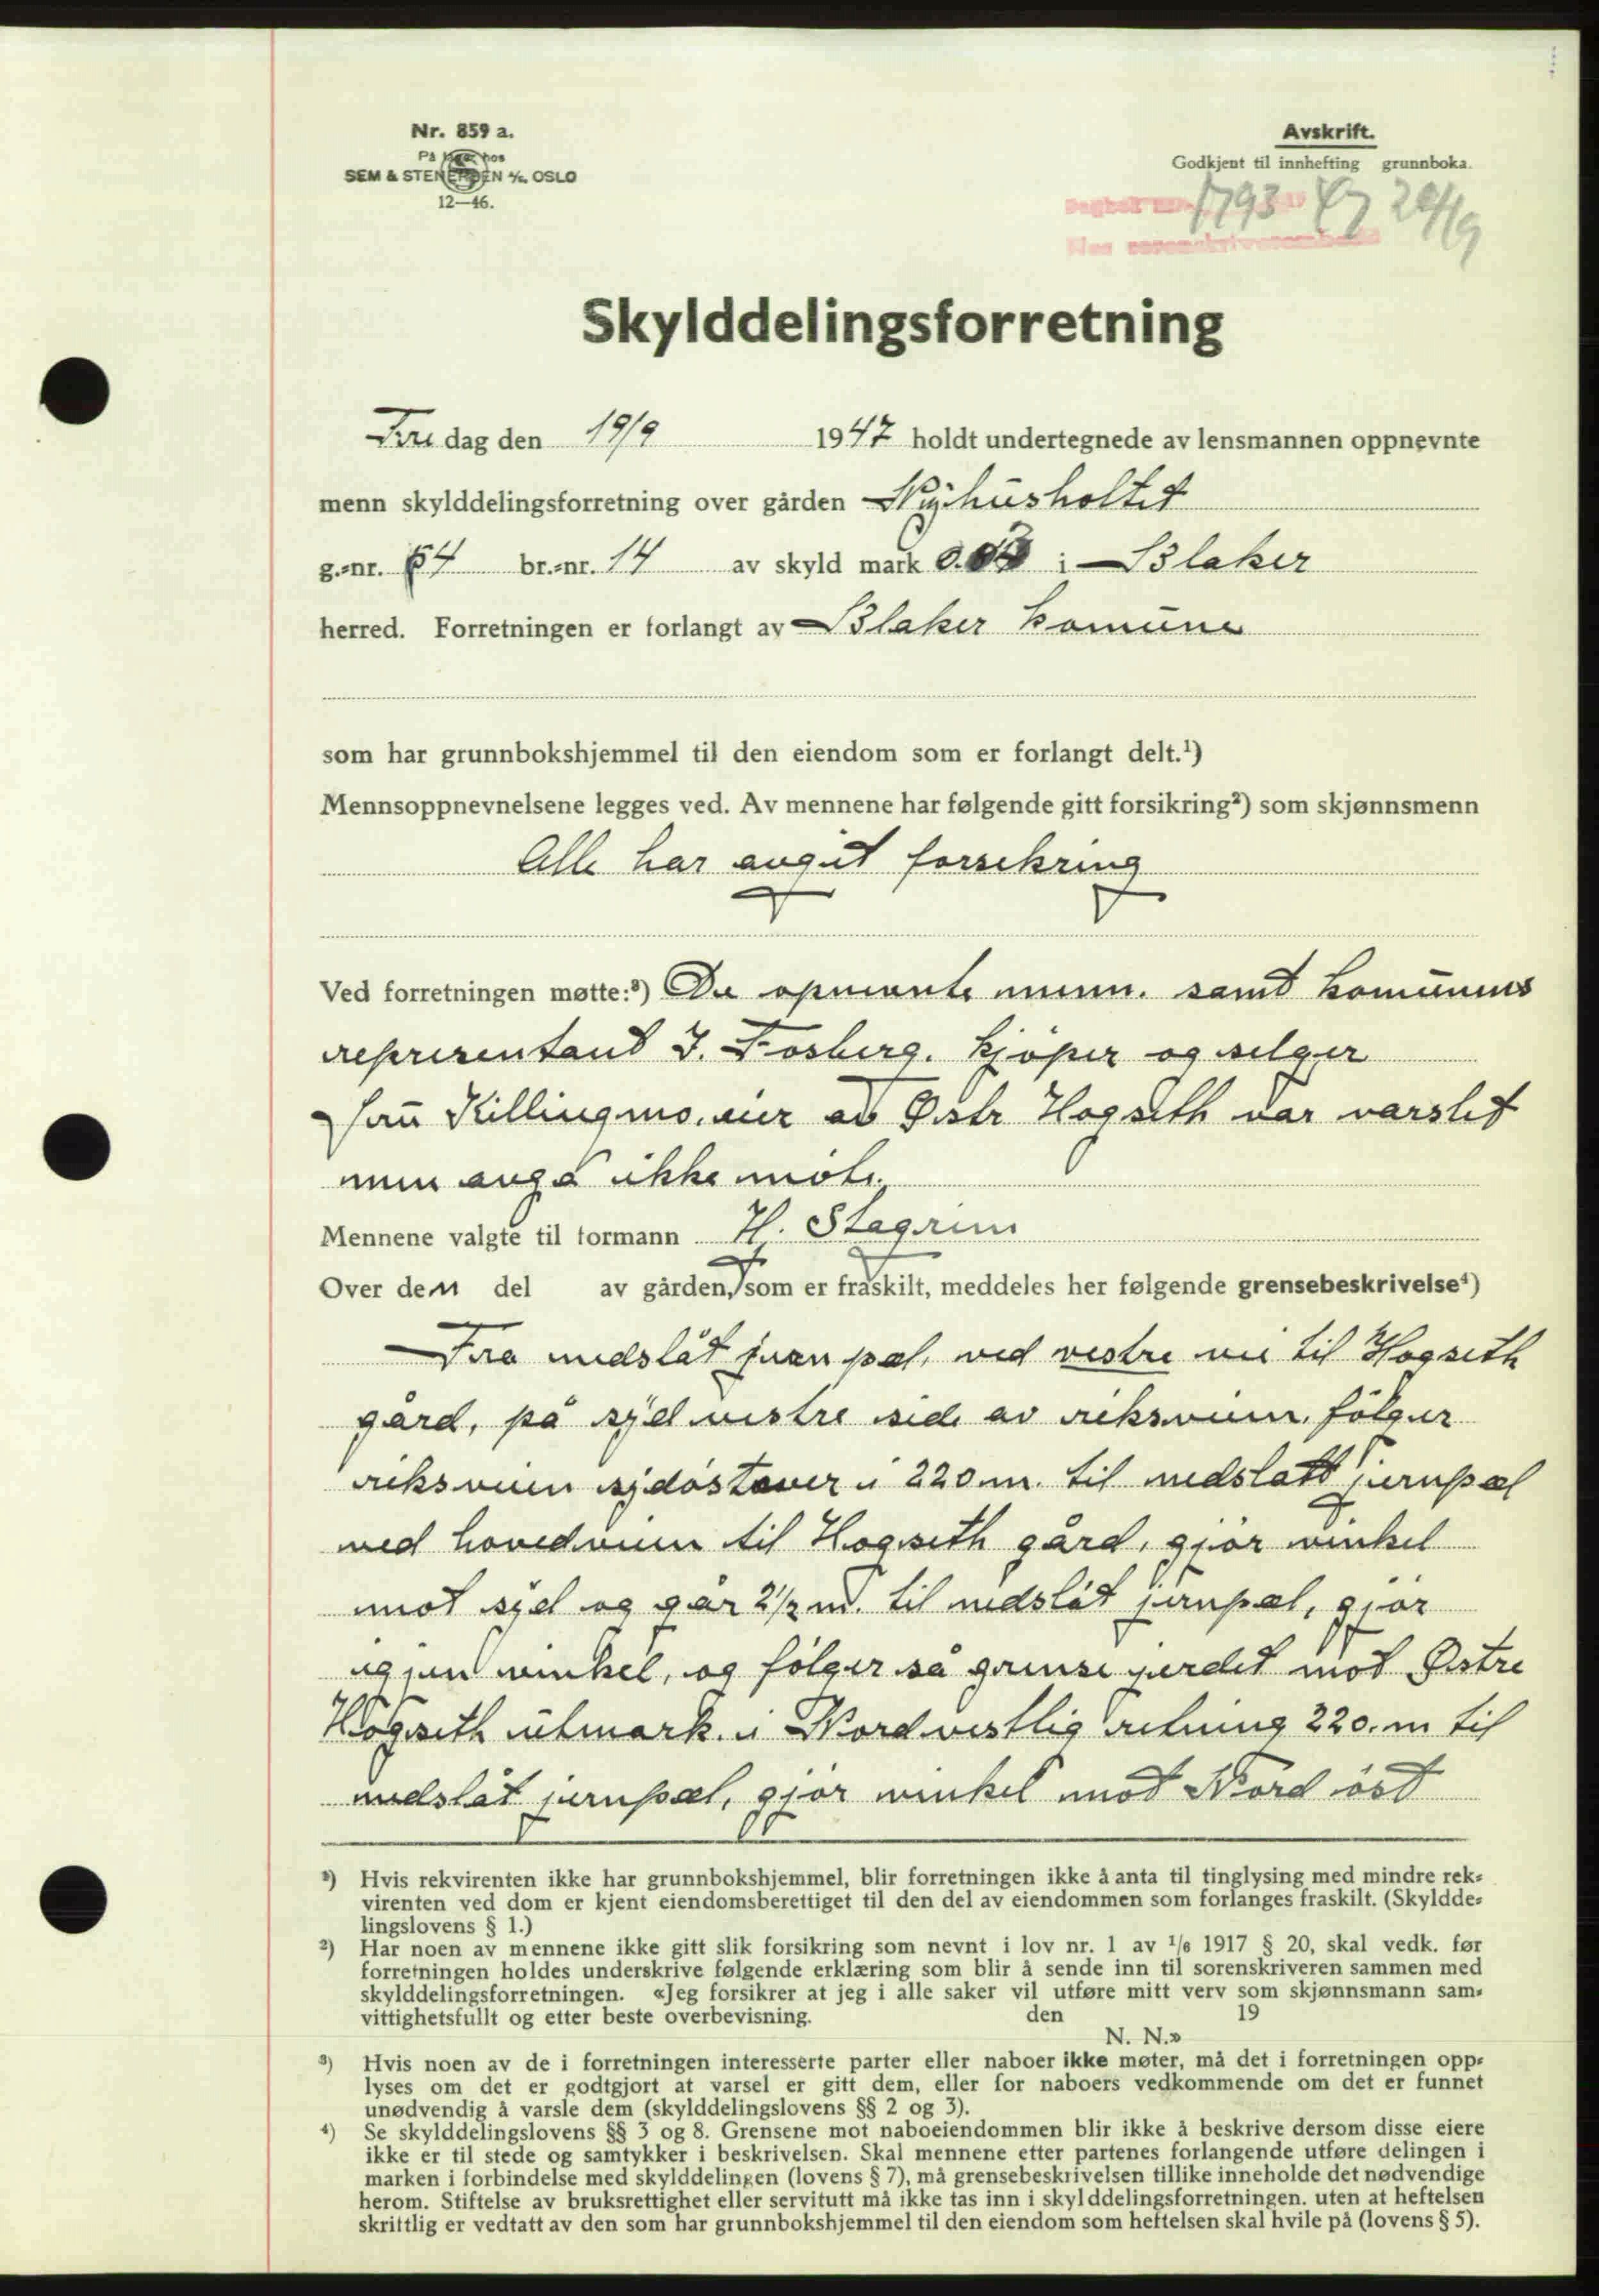 Nr. 859 a.
På lager hos
SEM & STENERSEN A/S OSLO
12—46.
Avskrift.
Godkjent til innhefting grunnboka.
1793 47 20/9
Skylddelingsforretning
Fredag den 19/9 1947 holdt undertegnede av lensmannen oppnevnte
menn skylddelingsforretning over gården Nyhusholtet
g.-nr. 64 br.-nr. 14 av skyld mark i Blaker
herred. Forretningen er forlangt av Blaker Komune
som har grunnbokshjemmel til den eiendom som er forlangt delt.¹)
Mennsoppnevnelsene legges ved. Av mennene har følgende gitt forsikring²) som skjønnsmenn
Alle har avgit forsekring
Ved forretningen møtte:³) De opnevnte menn. samt Komunens
representant J. Fosberg. Kjøper og selger
Killingmo. eier av Østr Hogseth var varslet
men angå ikke møte.
Mennene valgte til formann H. Stegrim
Over den del av gården, som er fraskilt, meddeles her følgende grensebeskrivelse⁴)
Fra nedslåt jern pæl, ved vestre vei til Hogseth
gård, på syd vestre side av riksveien, følger
riksveien sydøstover i 220 m. til nedslått jernpæl
ved hovedveien til Hogseth gård, gjør vinkel
mot syd og går 21/2 m. til nedslåt jernpæl, gjør
igjen vinkel, og følger så grense gjerdet mot Østre
Hogseth utmark. i Nordvestlig retning 220. m til
nedslåt jernpæl, gjør vinkel mot Nord øst
¹) Hvis rekvirenten ikke har grunnbokshjemmel, blir forretningen ikke å anta til tinglysing med mindre rek-
virenten ved dom er kjent eiendomsberettiget til den del av eiendommen som forlanges fraskilt. (Skyldde-
lingslovens § 1.)
²) Har noen av mennene ikke gitt slik forsikring som nevnt i lov nr. 1 av 1/6 1917 § 20, skal vedk. før
forretningen holdes underskrive følgende erklæring som blir å sende inn til sorenskriveren sammen med
skylddelingsforretningen. «Jeg forsikrer at jeg i alle saker vil utføre mitt verv som skjønnsmann sam-
vittighetsfullt og etter beste overbevisning. den 19
N. N.»
³) Hvis noen av de i forretningen interesserte parter eller naboer ikke møter, må det i forretningen opp-
lyses om det er godtgjort at varsel er gitt dem, eller for naboers vedkommende om det er funnet
unødvendig å varsle dem (skylddelingslovens §§ 2 og 3).
⁴) Se skylddelingslovens §§ 3 og 8. Grensene mot naboeiendommen blir ikke å beskrive dersom disse eiere
ikke er til stede og samtykker i beskrivelsen. Skal mennene etter partenes forlangende utføre delingen i
marken i forbindelse med skylddelingen (lovens § 7), må grensebeskrivelsen tillike inneholde det nødvendige
herom. Stiftelse av bruksrettighet eller servitutt må ikke tas inn i skylddelingsforretningen. uten at heftelsen
skriftlig er vedtatt av den som har grunnbokshjemmel til den eiendom som heftelsen skal hvile på (lovens § 5).